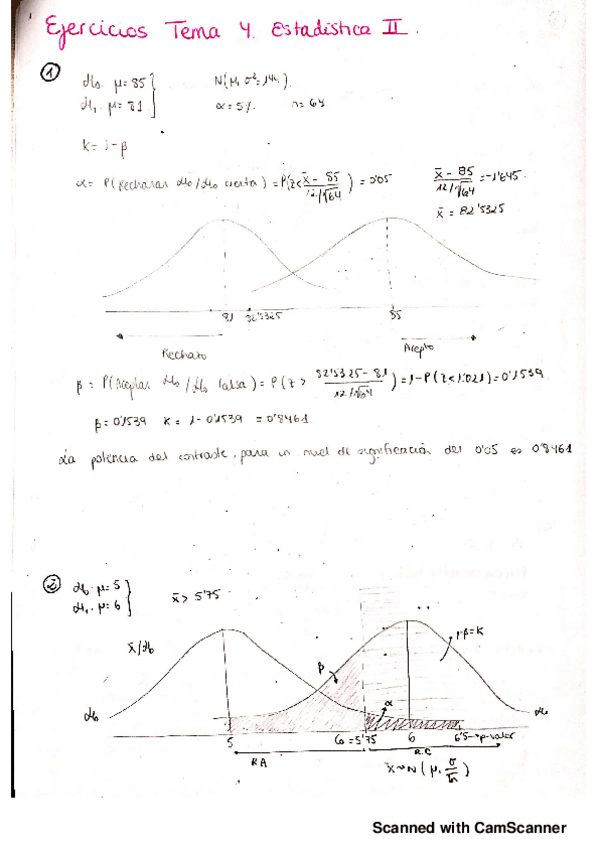 Ejercicios Tema 4. Estadística II.
①
H₀ μ=85
H₁. μ=81
N(μ, σ²=144).
α=5%. n=64
K=1-β
α= P(Rechazar H₀/H₀ cierta) = P(Z< x̄-85 / 12/√64) = 0'05
x̄-85 / 12/√64 = -1'645.
x̄ = 82'5325
81 82'5325 85
Rechazo Acepto
β = P(Aceptar H₀/H₀ falsa) = P(Z > 82'5325-81 / 12/√64) = 1-P(Z<1.021) = 0'1539
β=0'1539 K=1-0'1539 =0'8461
La potencia del contraste, para un nivel de significación del 0'05 es 0'8461
②
H₀. μ=5
H₁. μ=6
x̄> 5'75
x̄/H₀
β
1-β=K
α
H₀
5 6 6'5→p-valor
RA R.C
x̄~N(μ, σ/√n)
Scanned with CamScanner